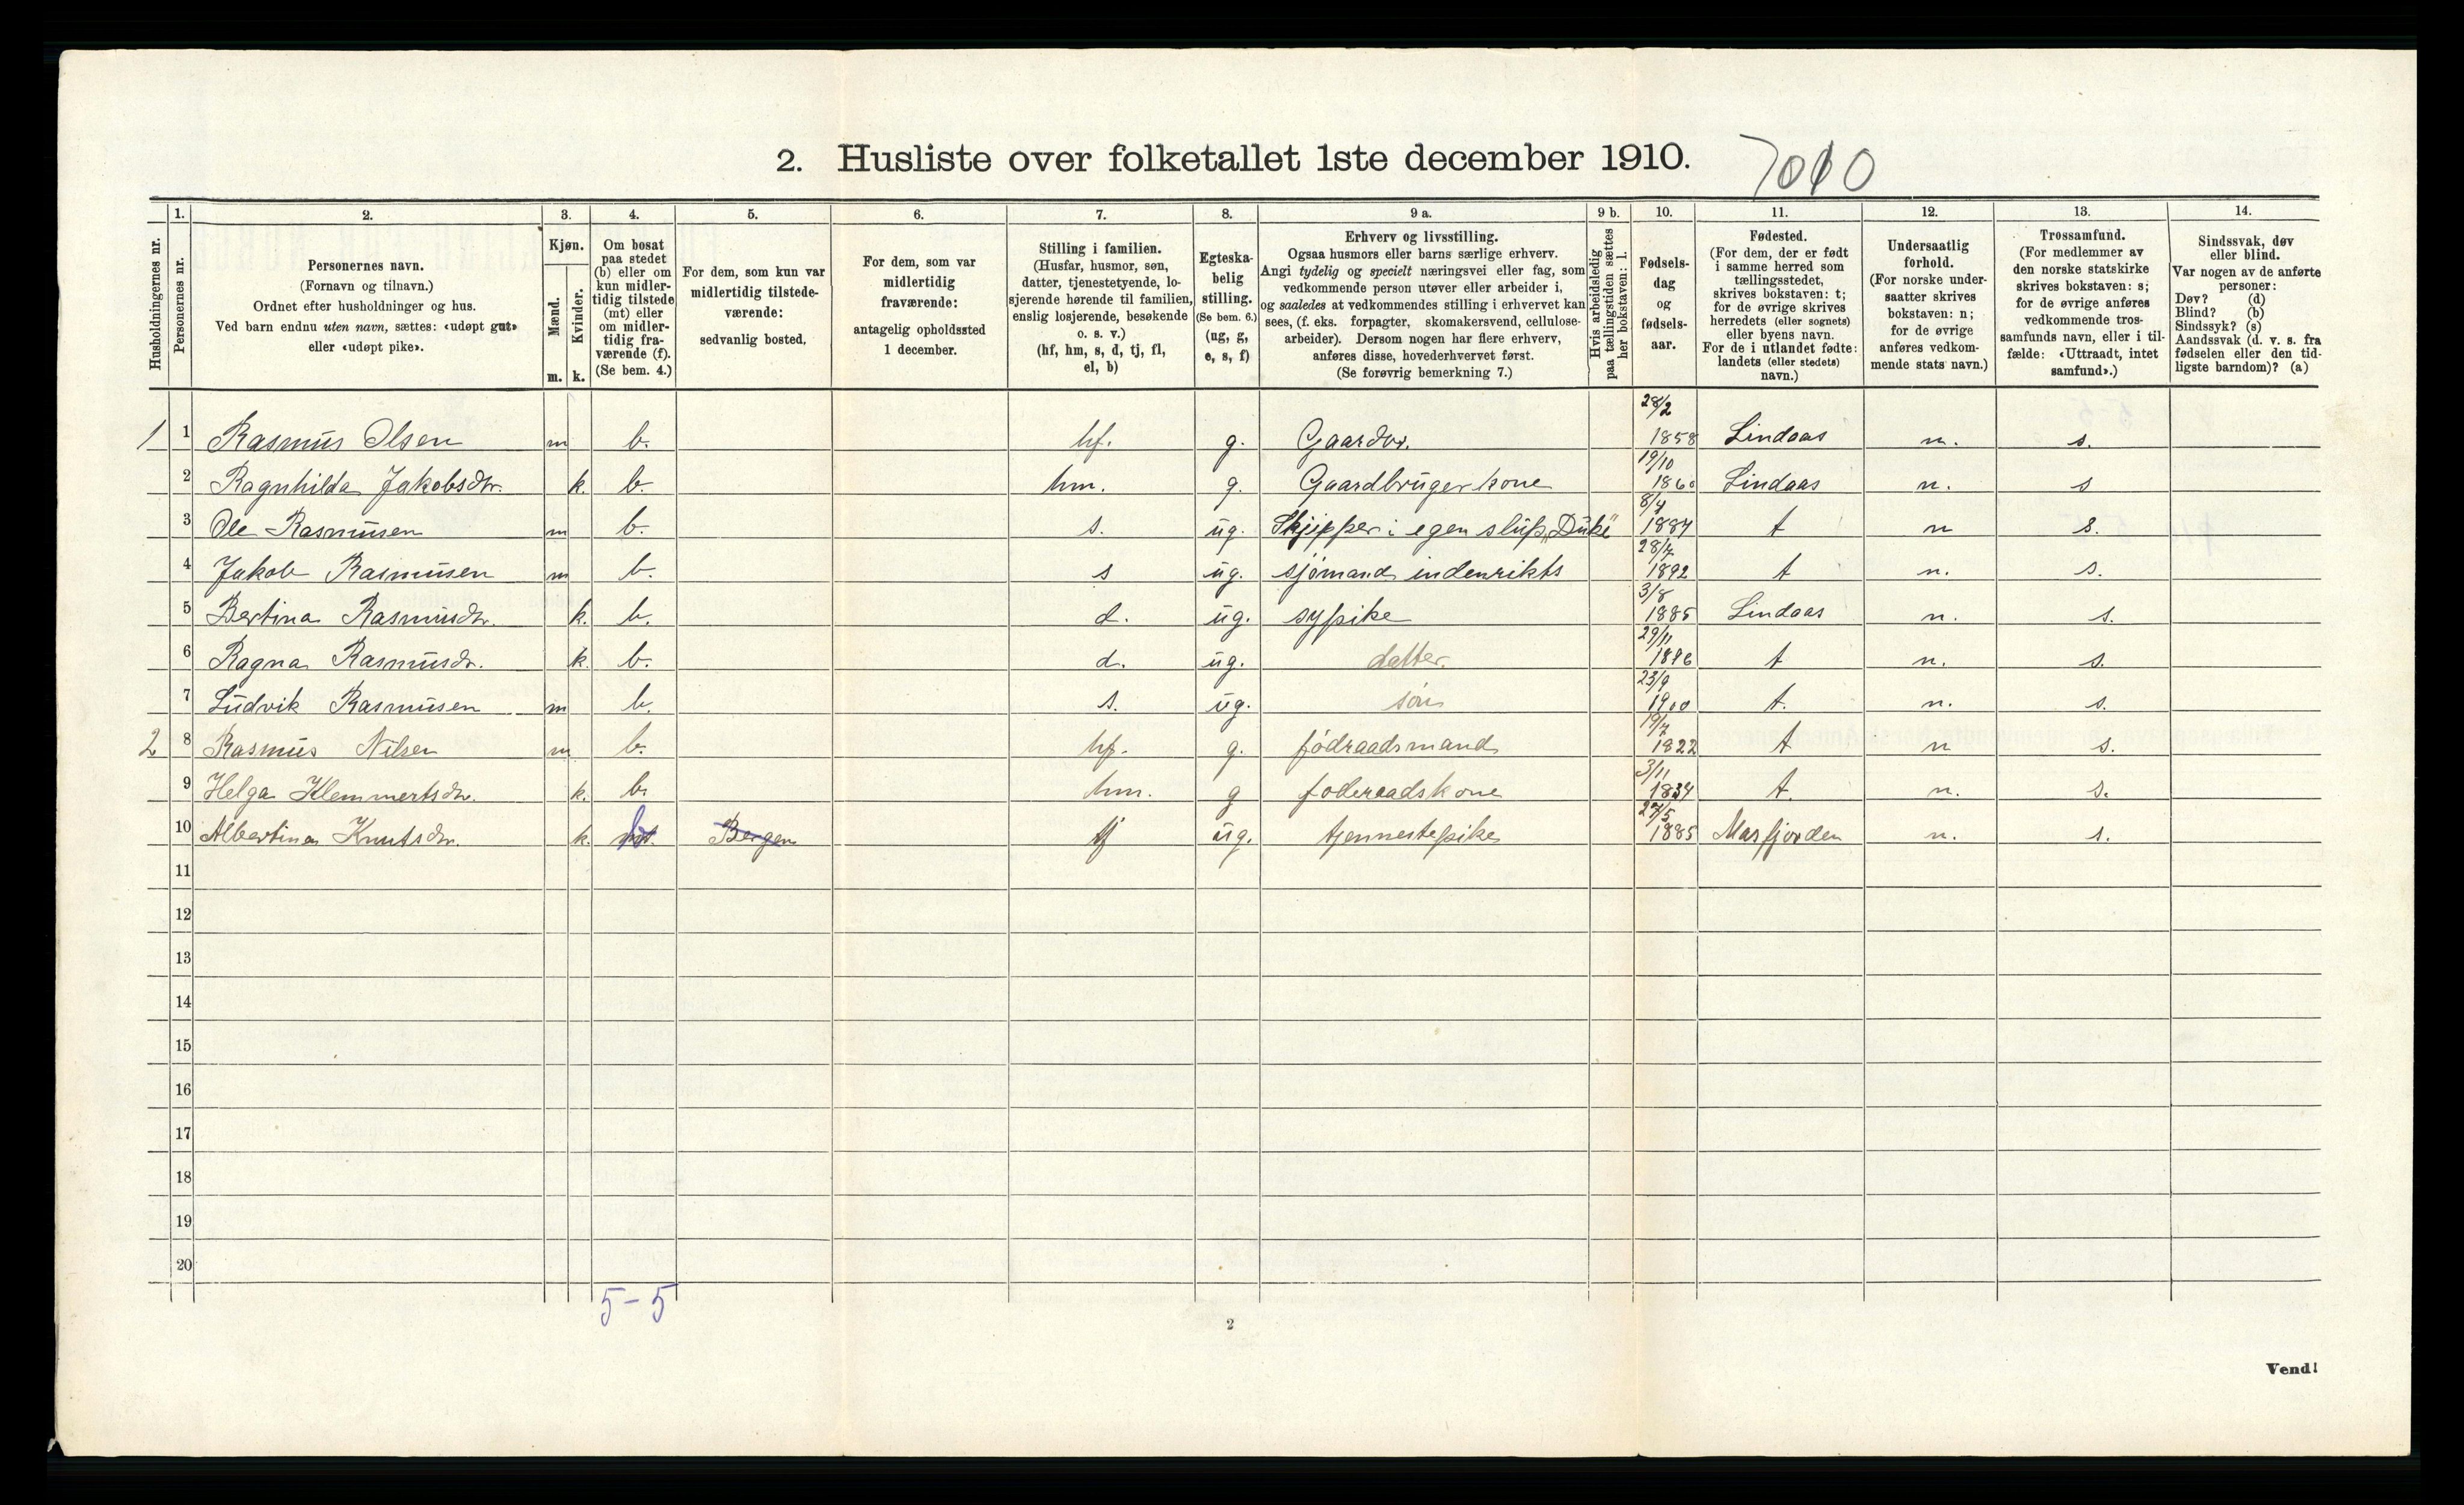 2. Husliste over folketallet 1ste december 1910.
Husholdningernes nr.
1. Personernes nr.
2. Personernes navn. (Fornavn og tilnavn.) Ordnet efter husholdninger og hus. Ved barn endnu uten navn, sættes: «udøpt gut» eller «udøpt pike».
3. Kjøn. Mænd. m. Kvinder. k.
4. Om bosat paa stedet (b) eller om kun midlertidig tilstede (mt) eller om midlertidig fraværende (f). (Se bem. 4.)
5. For dem, som kun var midlertidig tilstedeværende: sedvanlig bosted.
6. For dem, som var midlertidig fraværende: antagelig opholdssted 1 december.
7. Stilling i familien. (Husfar, husmor, søn, datter, tjenestetyende, losjerende hørende til familien, enslig losjerende, besøkende o. s. v.) (hf, hm, s, d, tj, fl, el, b)
8. Egteskabelig stilling. (Se bem. 6.) (ug, g, e, s, f)
9 a. Erhverv og livsstilling. Ogsaa husmors eller barns særlige erhverv. Angi tydelig og specielt næringsvei eller fag, som vedkommende person utøver eller arbeider i, og saaledes at vedkommendes stilling i erhvervet kan sees, (f. eks. forpagter, skomakersvend, cellulosearbeider). Dersom nogen har flere erhverv, anføres disse, hovederhvervet først. (Se forøvrig bemerkning 7.)
9 b. Hvis arbeidsledig paa tællingstiden sættes her bokstaven: l.
10. Fødselsdag og fødselsaar.
11. Fødested. (For dem, der er født i samme herred som tællingsstedet, skrives bokstaven: t; for de øvrige skrives herredets (eller sognets) eller byens navn. For de i utlandet fødte: landets (eller stedets) navn.)
12. Undersaatlig forhold. (For norske undersaatter skrives bokstaven: n; for de øvrige anføres vedkommende stats navn.)
13. Trossamfund. (For medlemmer av den norske statskirke skrives bokstaven: s; for de øvrige anføres vedkommende trossamfunds navn, eller i tilfælde: «Uttraadt, intet samfund».)
14. Sindssvak, døv eller blind. Var nogen av de anførte personer: Døv? (d) Blind? (b) Sindssyk? (s) Aandssvak (d. v. s. fra fødselen eller den tidligste barndom)? (a)
1 1 Rasmus Olsen m b. hf. g. Gaardbr. 28/2 1858 Lindaas n. s.
2 Ragnhilda Jakobsdtr. k. b. hm. g. Gaardbrugerkone 19/10 1860 Lindaas n. s
3 Ole Rasmusen m b. s. ug. Skjipper i egen slup „Duke" 8/4 1884 t n s.
4 Jakob Rasmusen m b. s ug. sjömand indenrikts 28/7 1892 t n. s.
5 Bertina Rasmusdtr. k. b. d. ug. sypike 3/8 1885 Lindaas n. s.
6 Ragna Rasmusdr. k. b. d. ug. datter. 29/11 1896 t n. s.
7 Ludvik Rasmusen m b. s. ug. søn 23/9 1900 t. n. s.
2 8 Rasmus Nilsen m b. hf. g. födraadsmand 19/7 1822 t n s.
9 Helga Klemmertsdtr. k. b. hm. g foderaadskone 3/11 1834 t. n. s.
10 Albertina Knutsdtr. k. Bergen tj ug. tjennestepike 27/5 1885 Masfjorden n. s.
11
12
13
14
15
16
17
18
19
20
5-5
2
Vend!